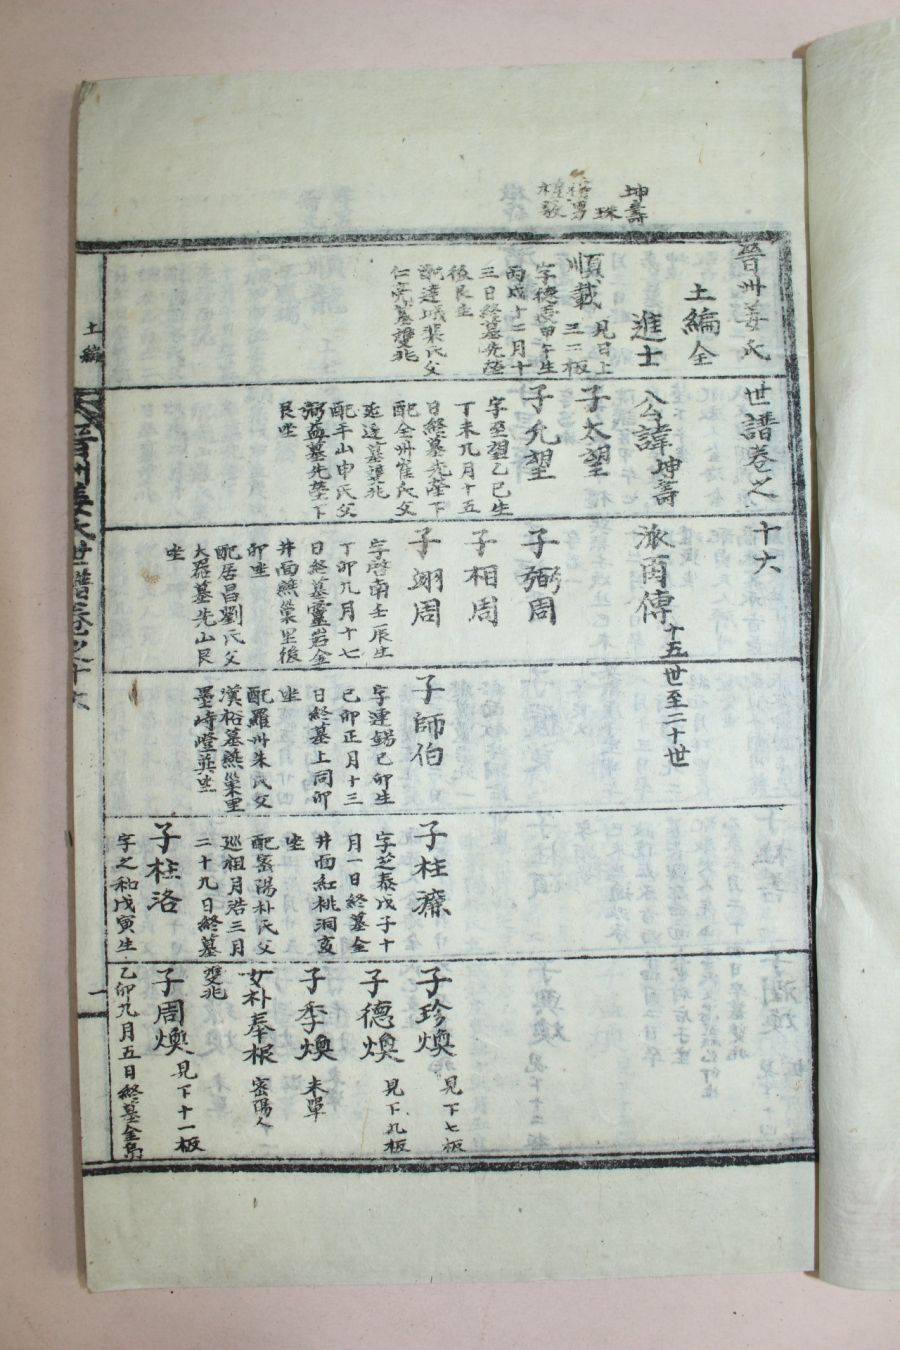 坤壽
珠
晉州姜氏世譜卷之十六
土編全
進士公諱坤壽派百傳十五世至二十世
順載
見日上三二板
字德雯甲午生
丙戌十二月十
三日終墓先塋
後艮坐
配達城裴氏父
仁亮墓雙兆
子太望
子允望
字巫望乙巳生
丁未九月十五
日終墓先塋下
配全州崔氏父
延迬墓雙兆
配平山申氏父
弼益墓先塋下
艮坐
子弼周
子相周
子翊周
字啓南壬辰生
丁卯九月十七
日終墓靈岩金
井面鷰巢里後
卯坐
配居昌劉氏父
大羅墓先山艮
坐
子師伯
字運錫己卯生
己卯正月十三
日終墓上同卯
坐
配羅州朱氏父
漢裕墓鷰巢里
墨崎嶝巽坐
子柱㵧
字芝泰戊子十
月一日終墓金
井面紅桃洞亥
坐
配密陽朴氏父
巡祖月浩三月
二十九日終墓
雙兆
子柱洛
字之和戊寅生
乙卯九月五日終墓金烏
子珍煥
見下七板
子德煥
見下九板
子季煥
未單
女朴奉根
密陽人
子周煥
見下十一板
土編
晉州姜氏世譜卷之十六
一